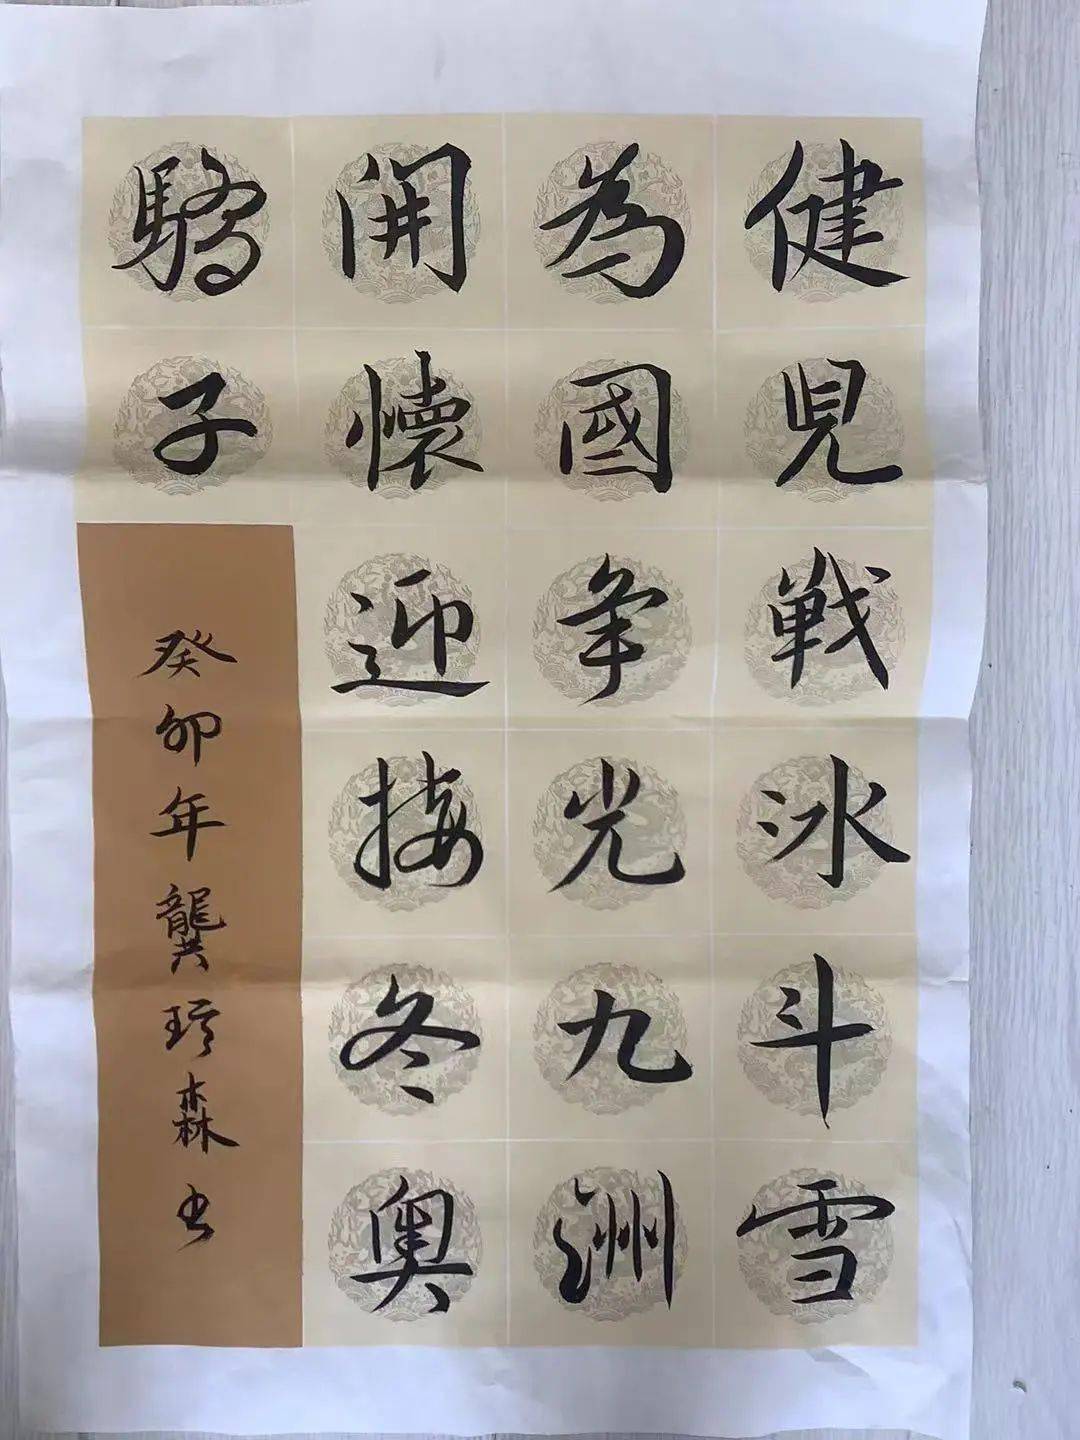 健兒戦冰斗雪
為國争光九洲
開懷迎接冬奥
驕子
癸卯年龔珍森书